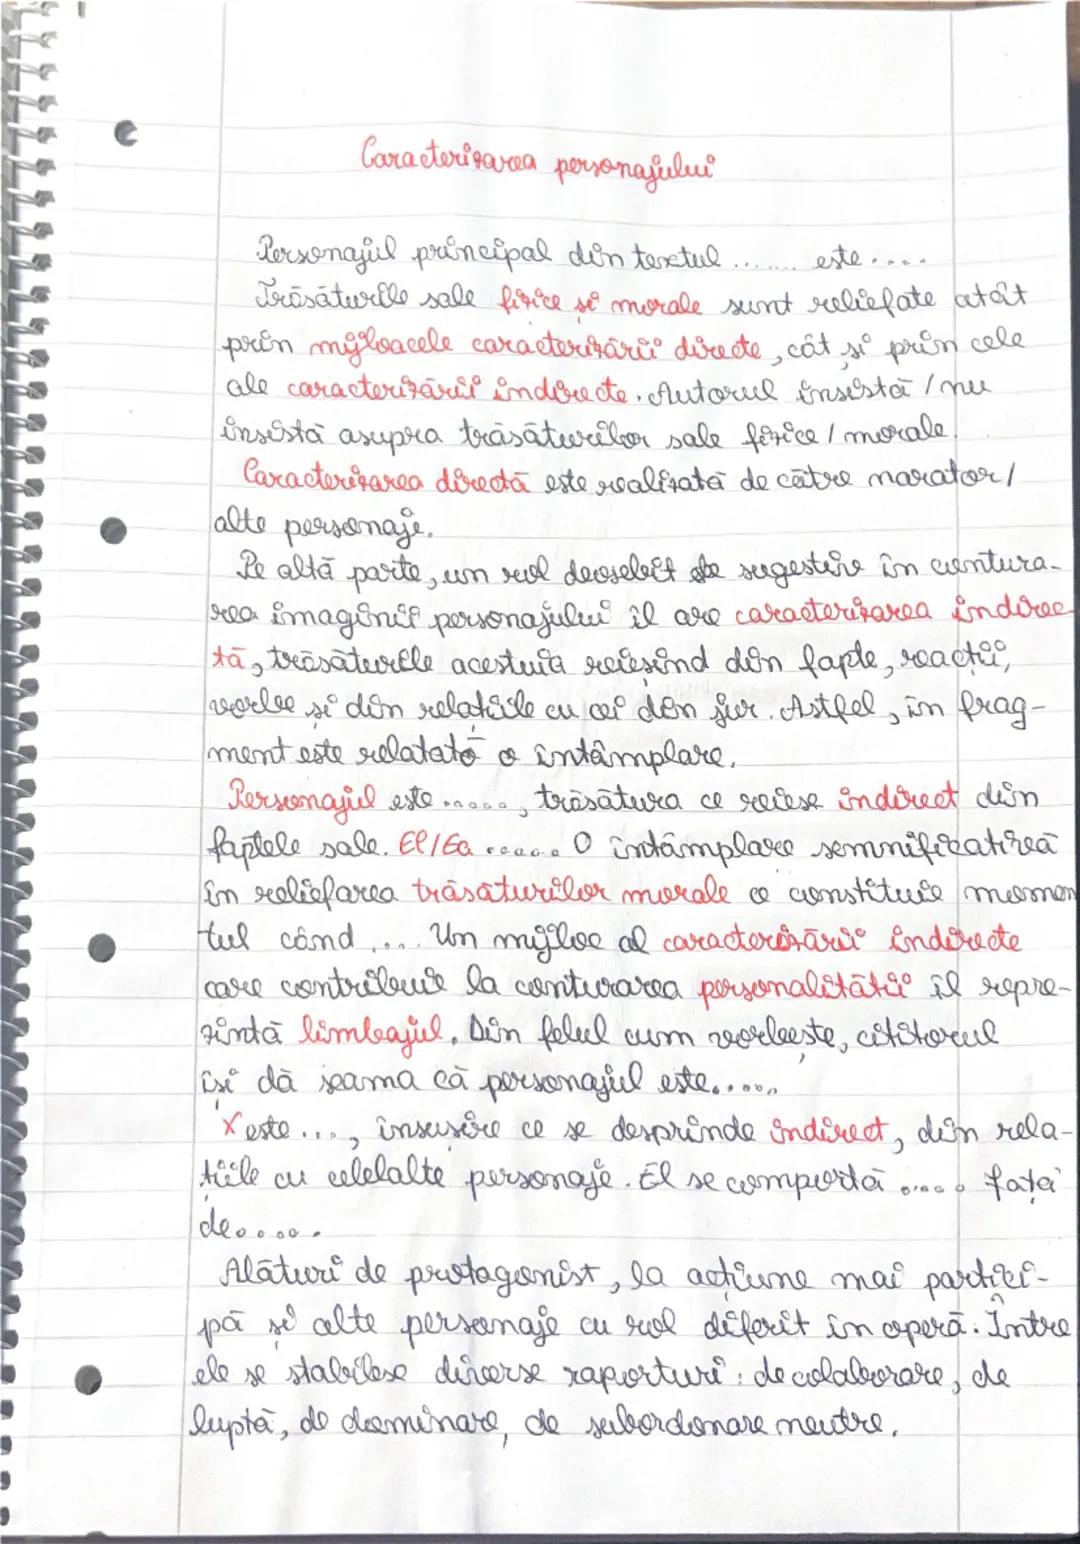 Caracterizarea personajului
Personajul principal din textul ....... este ....
Trăsăturile sale fizice și morale sunt reliefate atât
prin mijloacele caracterizării directe, cât și prin cele
ale caracterizării indirecte. Autorul insistă / nu
insistă asupra trăsăturilor sale fizice / morale.
Caracterizarea directă este realizată de către narator/
alte personaje.
Pe altă parte, un rol deosebit de sugestiv în contura-
rea imaginii personajului îl are caracterizarea indirec
tă, trăsăturile acestuia reieșind din fapte, reacții,
vorbe și din relațiile cu cei din jur. Astfel, în frag-
ment este relatată o întâmplare.
Personajul este ......, trăsătura ce reiese indirect din
faptele sale. El/Ea ...... O întâmplare semnificativă
în reliefarea trăsăturilor morale o constituie momen
tul când .... Un mijloc al caracterizării indirecte
care contribuie la conturarea personalității îl repre-
zintă limbajul. Din felul cum vorbește, cititorul
își dă seama că personajul este......
X este ..., însușire ce se desprinde indirect, din rela-
țiile cu celelalte personaje. El se comportă ..... față
de......
Alături de protagonist, la acțiune mai partici-
pă și alte personaje cu rol diferit în operă. Între
ele se stabilesc diverse raporturi: de colaborare, de
luptă, de dominare, de subordonare neutre.